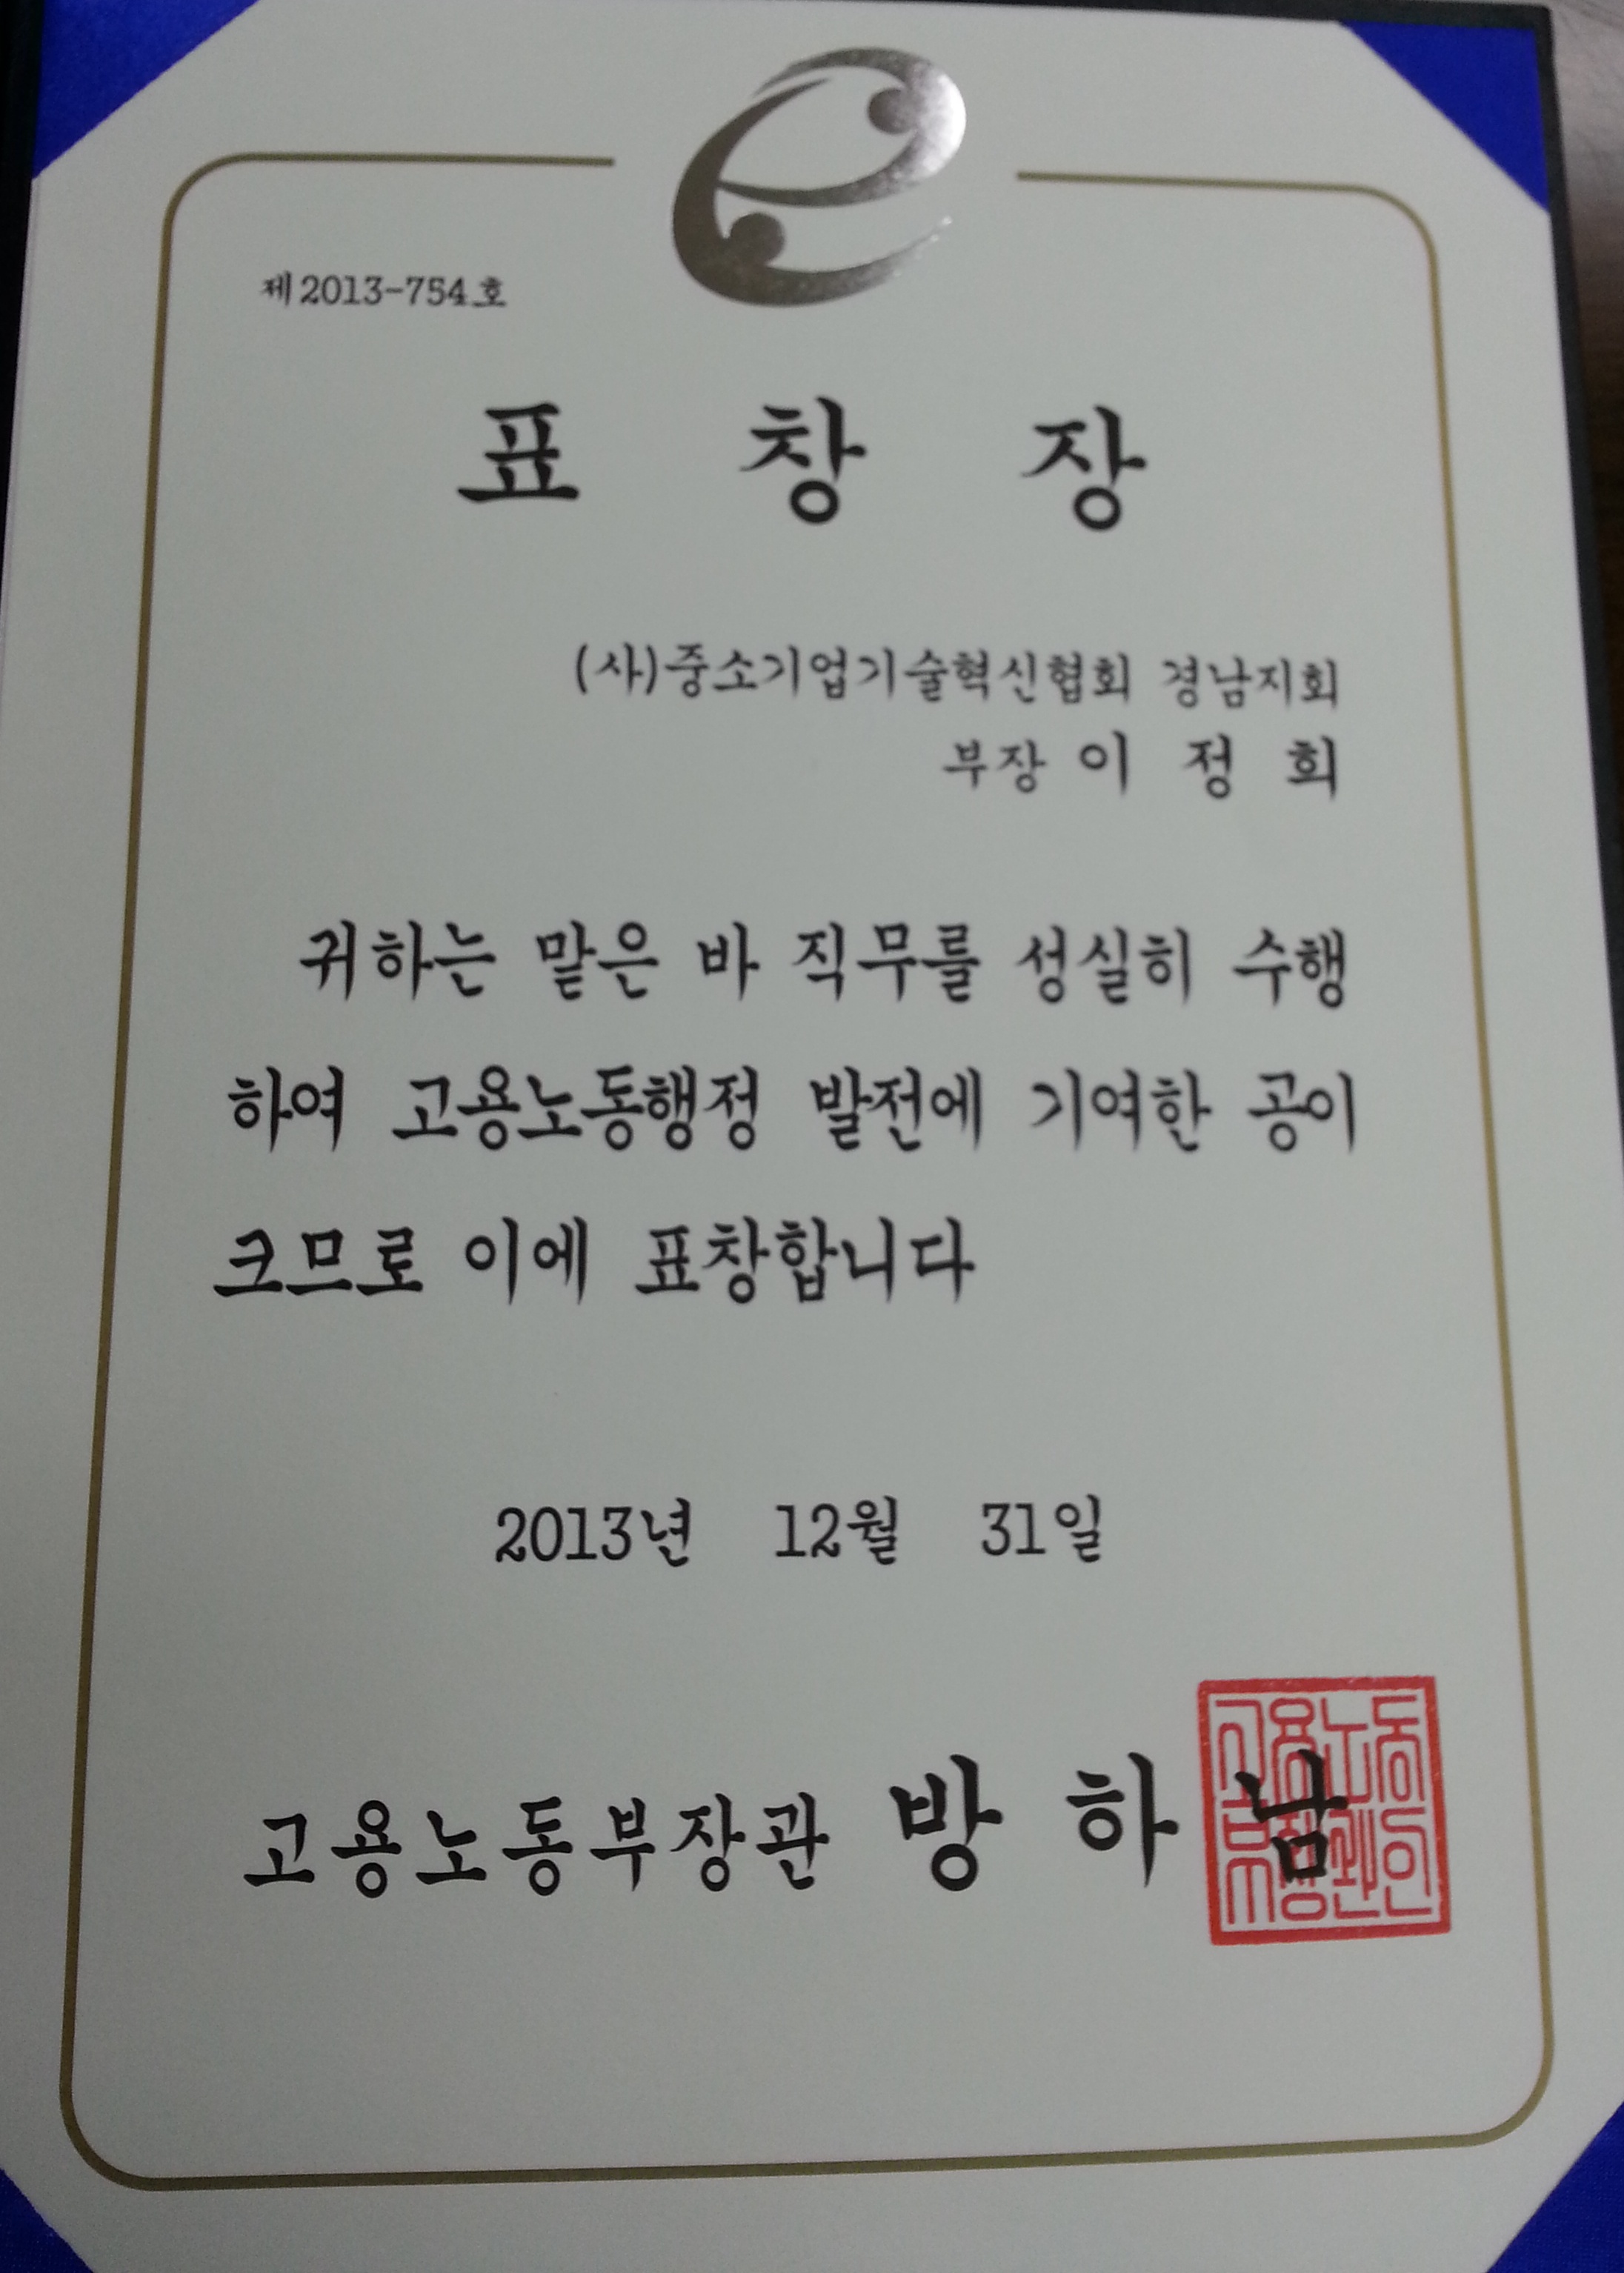 제2013-754호
표 창 장
(사)중소기업기술혁신협회 경남지회
부장 이 정 희
귀하는 맡은 바 직무를 성실히 수행
하여 고용노동행정 발전에 기여한 공이
크므로 이에 표창합니다
2013년 12월 31일
고용노동부장관 방 하 남